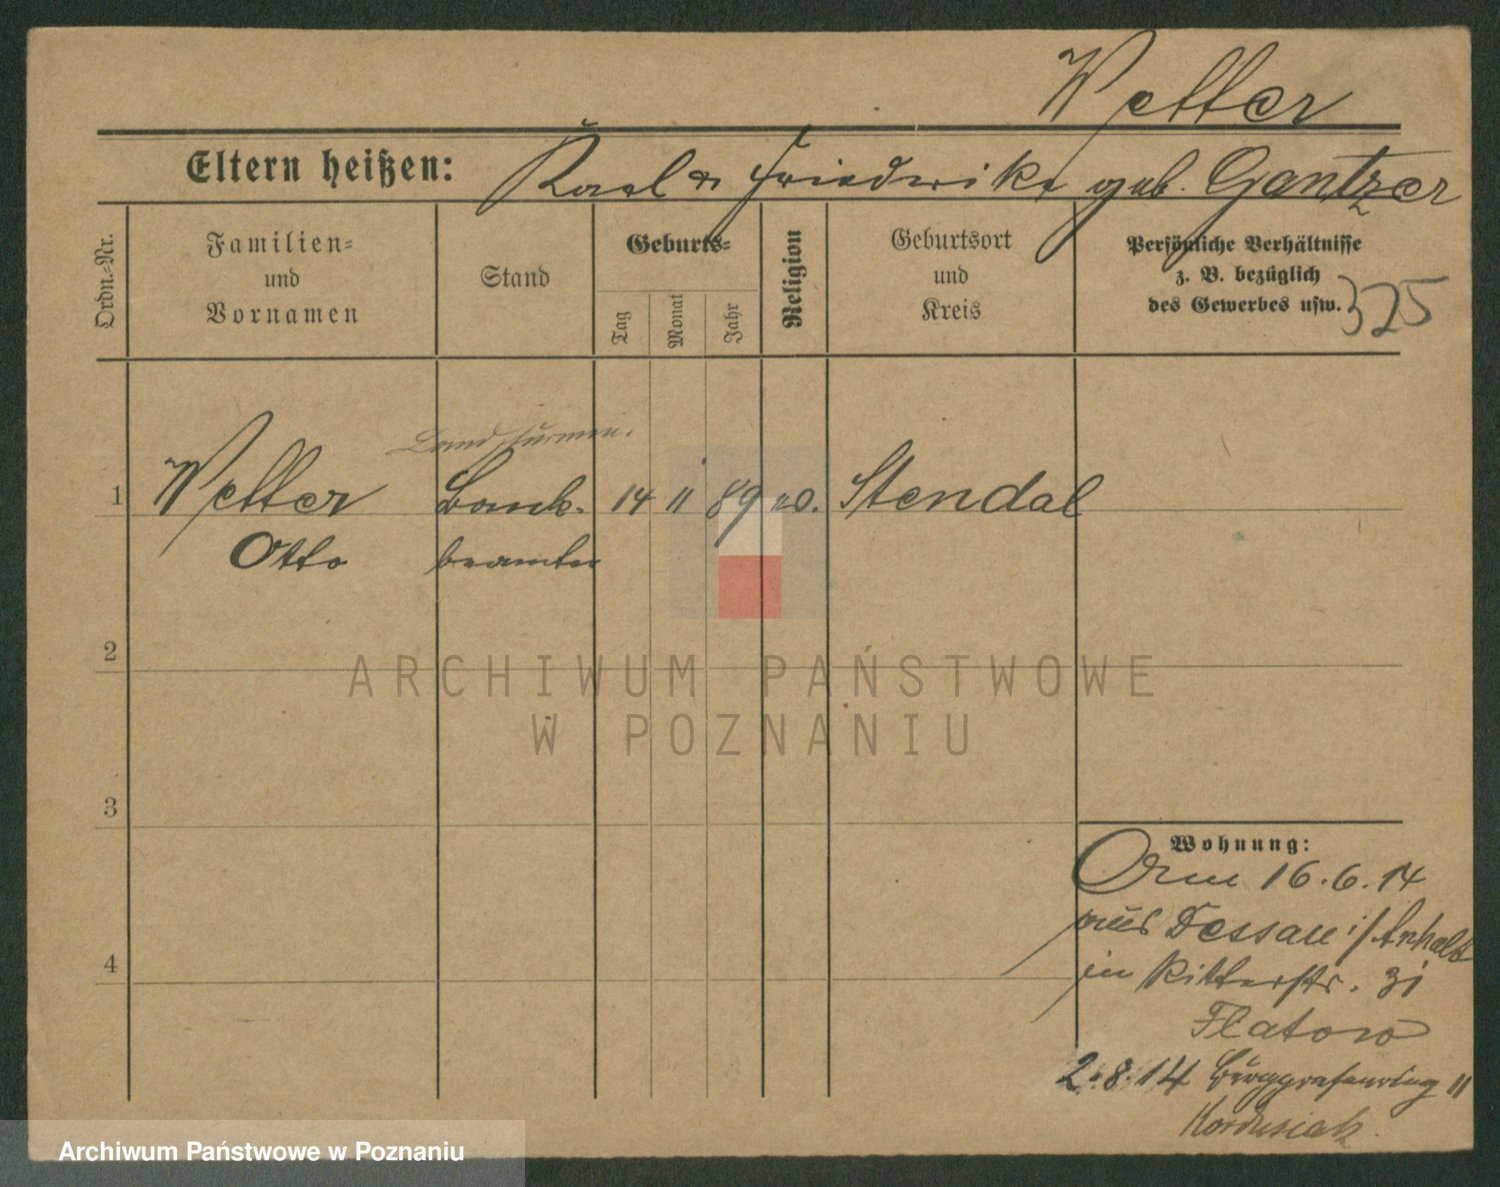 Vetter
Eltern heißen: Karl & Friederike geb. Gantzer
Ordn.-Nr.
Familien-
und
Vornamen
Stand
Geburts-
Tag
Monat
Jahr
Religion
Geburtsort
und
Kreis
Persönliche Verhältnisse
z. B. bezüglich
des Gewerbes usw.
325
Landsturmm.
1 Vetter Bank- 14 11 89 ev. Stendal
Otto beamter
2
3
4
Wohnung:
Am 16.6.14
aus Dessau i/Anhalt
in Ritterstr. 31
Flatow
2.8.14 Burggrafenring 11
Kordusiak
ARCHIWUM PAŃSTWOWE
W POZNANIU
Archiwum Państwowe w Poznaniu